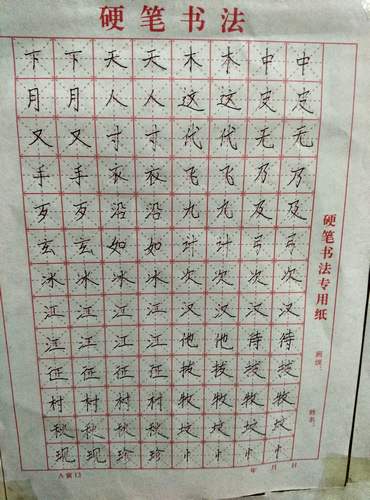 硬笔书法
下下天天木木中中
月月人人这这皮皮
又又寸寸代代无无
手手衣衣飞飞乃乃
歹歹沿沿九九及及
玄玄如如计计弓弓
冰冰冰冰次次次次
江江江江汉汉汉汉
江江江江他他待待
征征征征拔拔拔拔
村村村村牧牧牧牧
秋秋秋秋坟坟坟坟
现现珍珍忄忄忄忄
硬笔书法专用纸
班级
姓名
年 月 日